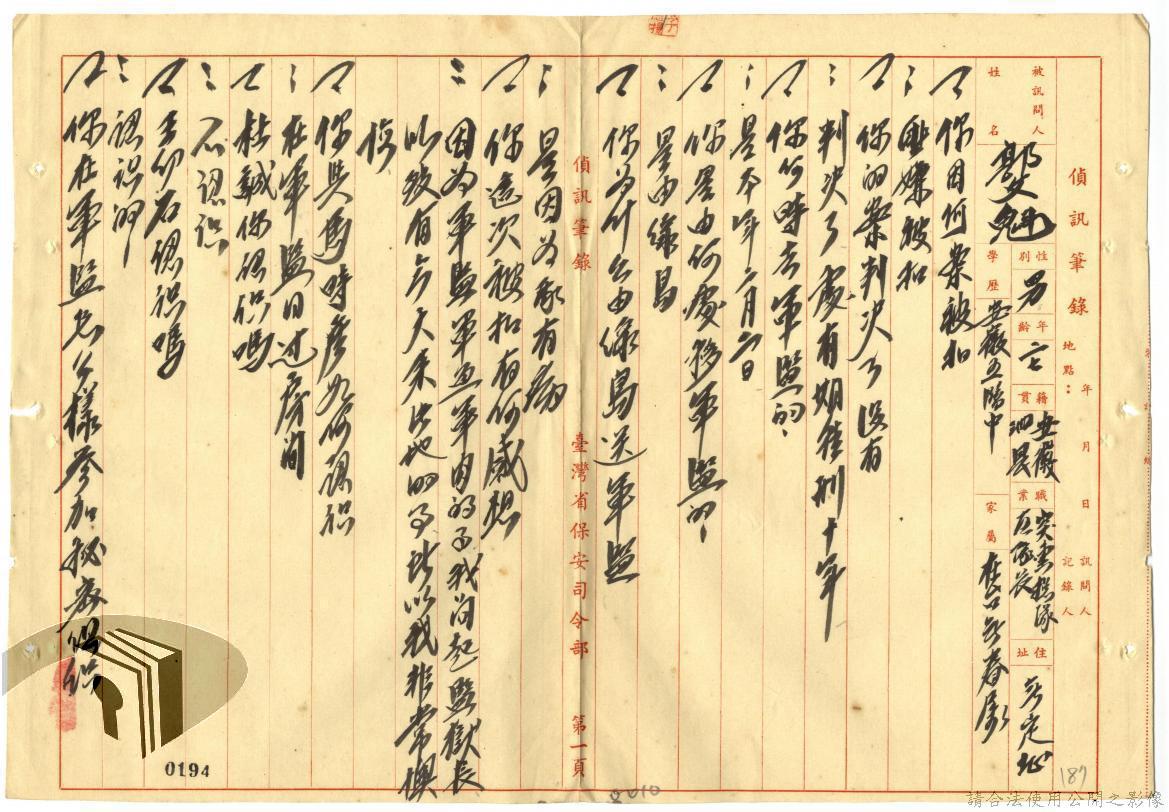 偵訊筆錄
地點：
年 月 日
訊問人
記錄人
被訊問人
姓名 郭文魁
性別 男
年齡 二七
籍貫 安徽 泗縣
職業 突擊總隊 區隊長
住址 無定址
學歷 安徽五臨中
家屬 在台無眷屬
你因何案被扣
匪嫌被扣
你的案判決了沒有
判決了處有期徒刑十年
你何時去軍監的
是本年二月六日
你是由何處移軍監的
是由綠島
你為什么由綠島送軍監
偵訊筆錄 臺灣省保安司令部 第一頁
是因為我有病
你這次被扣有何感想
因為軍監軍
以致有今天來此地的事所以我非常懊
悔
你與馬時彥如何認識
在軍監同過房間
杜誠你認識嗎
不認識
王仰石認識嗎
認識的
你在軍監怎么樣參加秘密組織
0194
187
請合法使用公開之影像